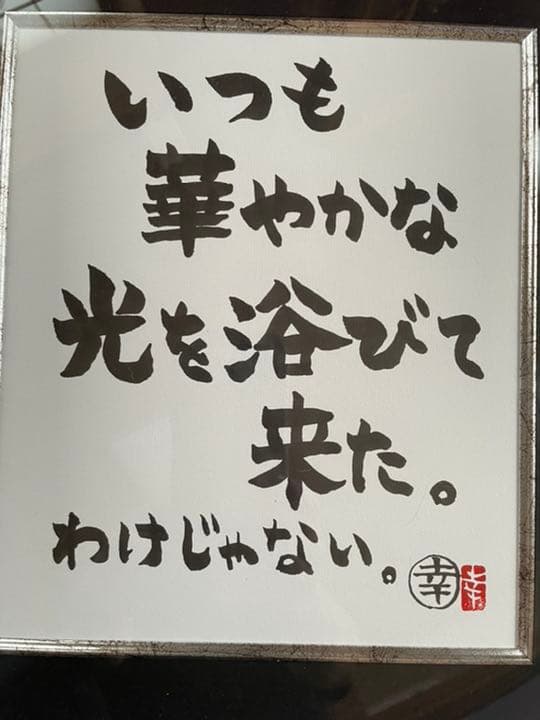 いつも
華やかな
光を浴びて
来た。
わけじゃない。
幸